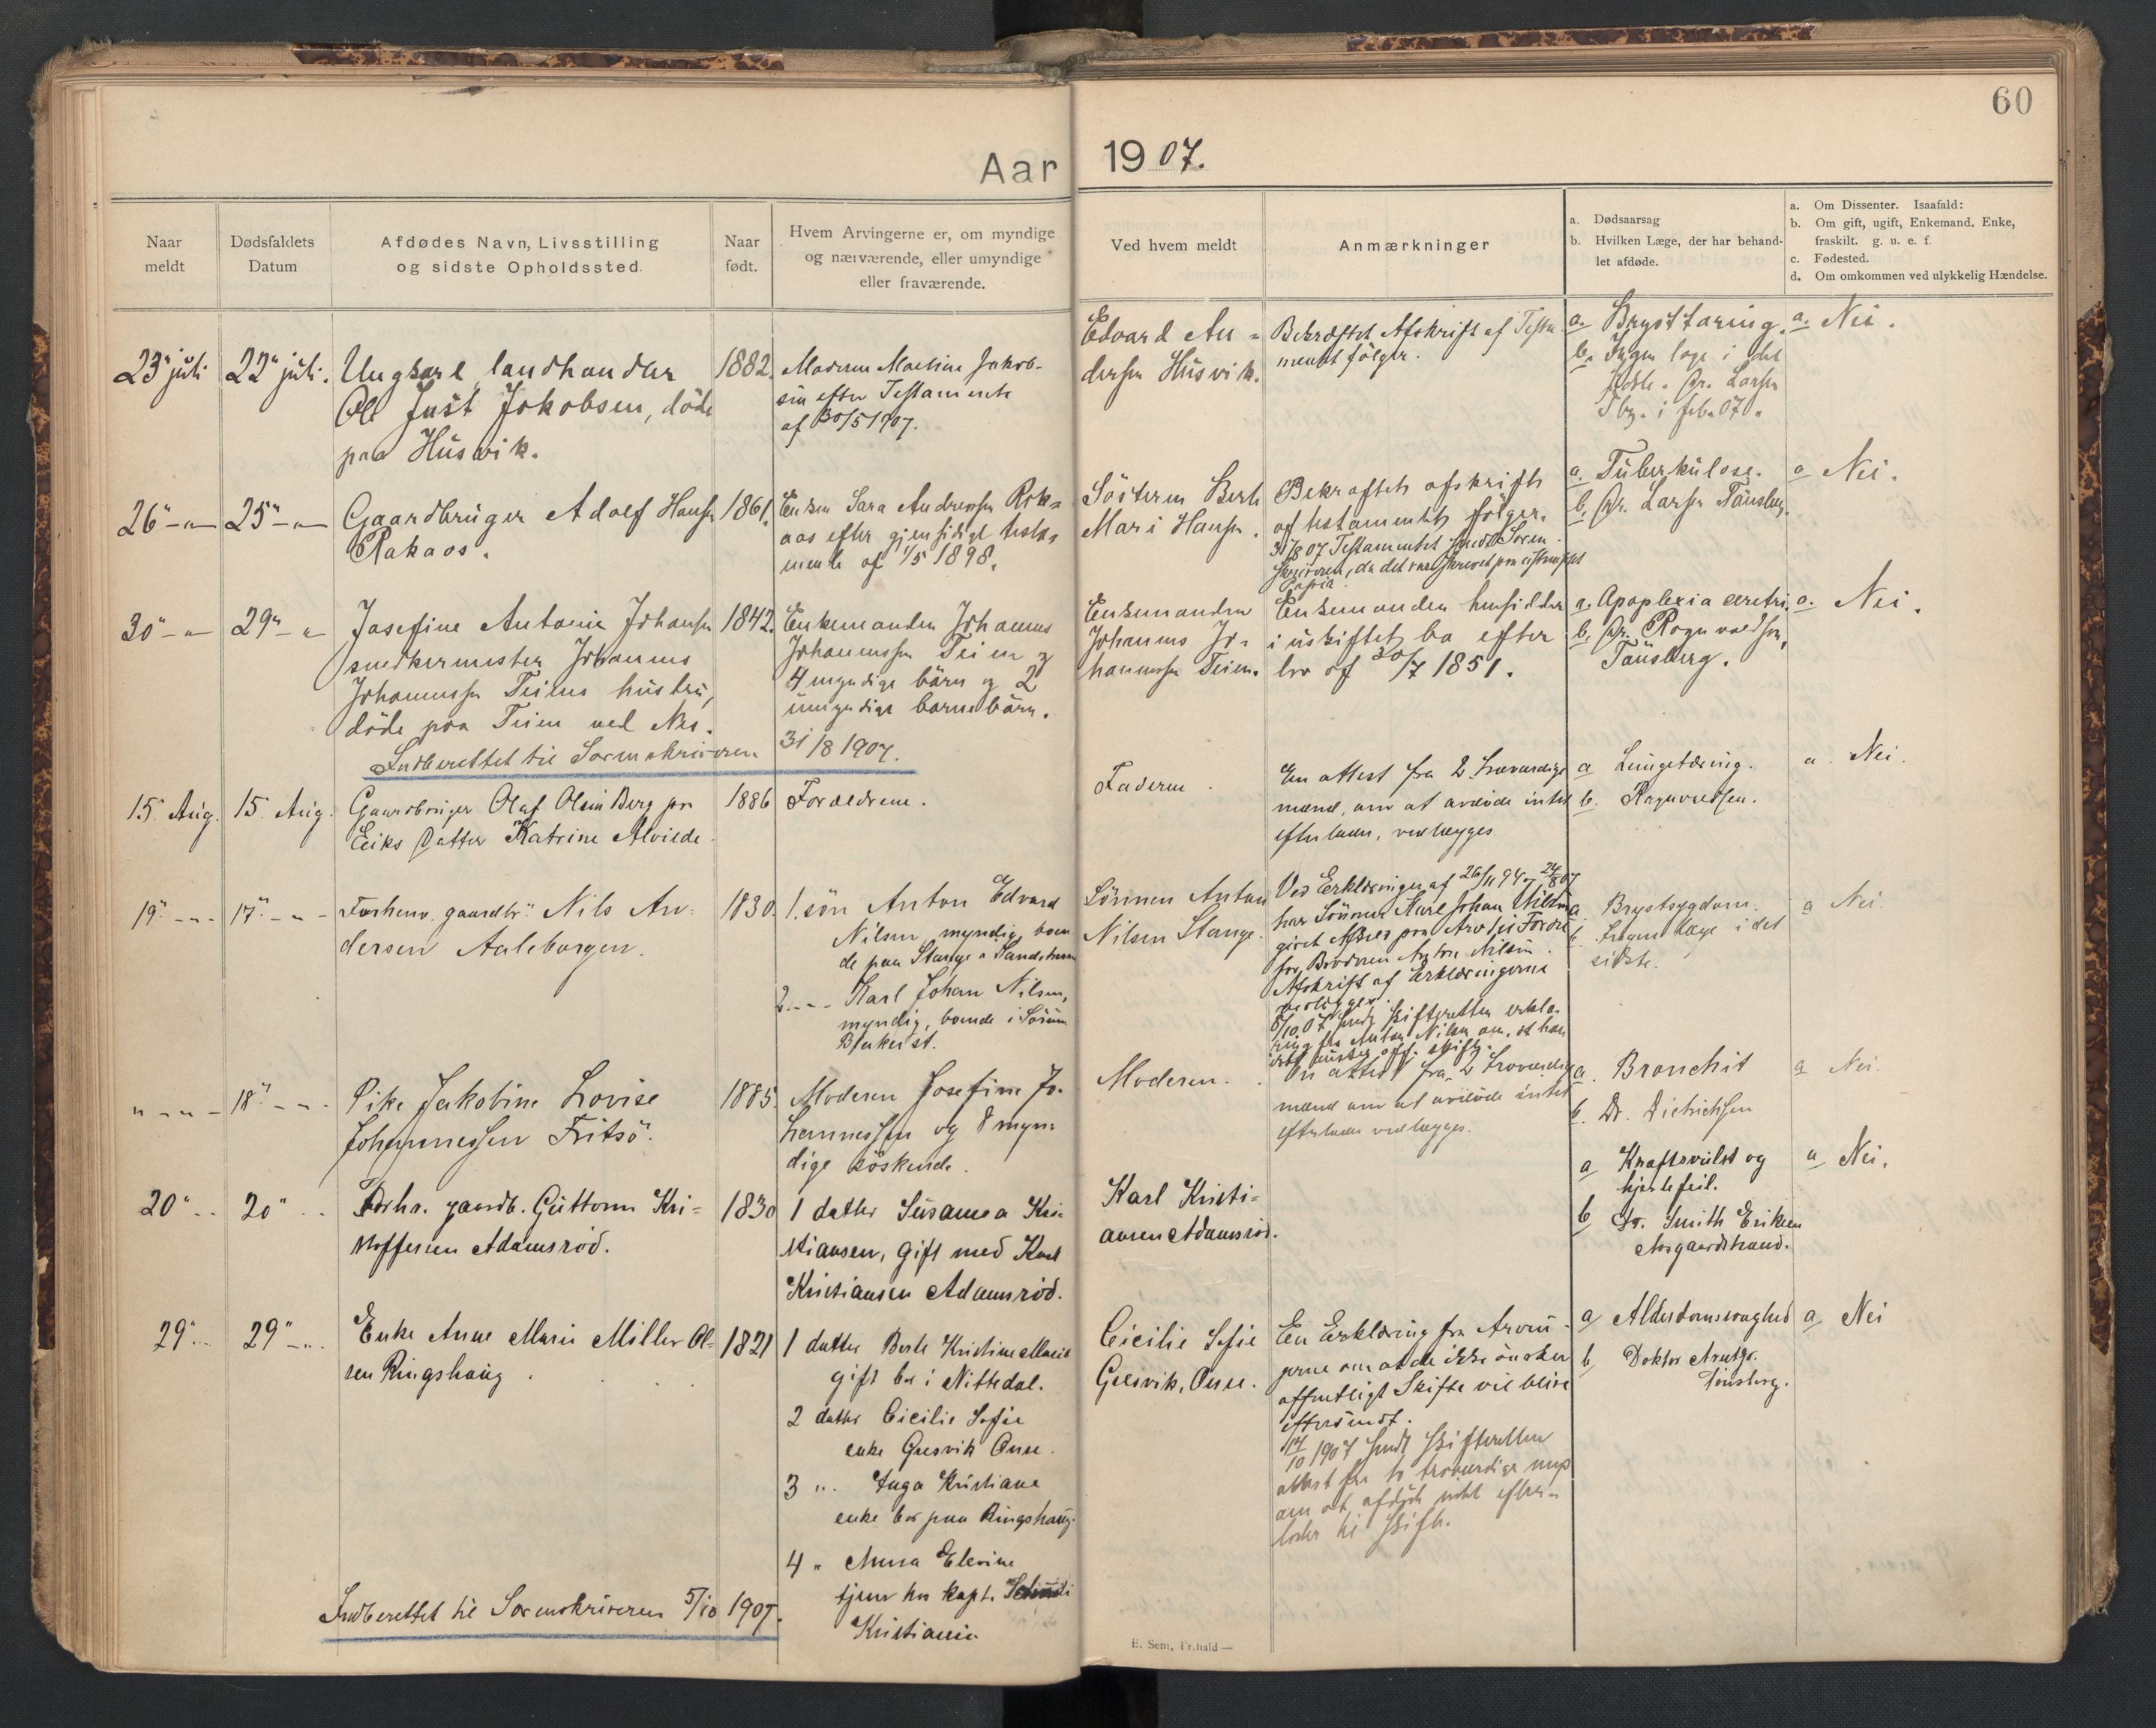 60
Aar 1907.
Naar meldt
Dødsfaldets Datum
Afdødes Navn, Livsstilling
og sidste Opholdssted.
Naar født.
Hvem Arvingerne er, om myndige
og nærværende, eller umyndige
eller fraværende.
Ved hvem meldt
Anmærkninger
a. Dødsaarsag
b. Hvilken Læge, der har behand-
let afdøde.
a. Om Dissenter. Isaafald:
b. Om gift, ugift, Enkemand, Enke,
fraskilt. g. u. e. f.
c. Fødested.
d. Om omkommen ved ulykkelig Hændelse.
23" juli
22" juli.
Ungkarl landhandler
Ole Just Jakobsen, döde
paa Husvik.
1882.
Madam Martine Jakob-
sen efter Testamente
af 30/5 1907.
Edvard An-
dersen Husvik.
Bekræftet Afskrift af Testa
mentet följer.
a. Brysttæring.
b. Ingen læge i det
sidste. Dr. Larsen
Tbg. i feb. 07.
a. Nei.
26"-"-
25"-"-
Gaardbruger Adolf Hansen
Rakaas.
1861.
Enken Sara Andreasen Rak-
aas efter gjensidigt testa-
mente af 1/5 1898.
Sösteren Berte
Mari Hansen.
Bekræftet afskrift
af testamentet följer.
31/8 07 Testamentet sendt Soren-
skriveren, da det var skrevet paa ustemplet
Papir.
a. Tuberkulose.
b. Dr. Larsen Tönsberg.
a Nei.
30"-"-
29"-"-
Josefine Antonie Johansen
snedkermester Johannes
Johannessen Teiens hustru,
döde paa Teien ved Nes.
1842.
Enkemanden Johannes
Johannessen Teien og
4 myndige börn og 2
umyndige barnebörn.
Enkemanden
Johannes Jo-
hannessen Teien.
Enkemanden hensidder
i uskiftet bo efter
lov af 30/7 1851.
a. Apoplexia cerebri.
b. Dr. Rognvaldsen,
Tönsberg.
a. Nei.
Indberettet til Sorenskriveren 31/8 1907.
15. Aug.
15. Aug.
Gaardbruger Olaf Olsen Berg paa
Eiks Datter Katrine Alvilde
1886
Forældrene.
Faderen.
En attest fra 2 troværdige
mænd, om at avdöde intet
efterlader, vedlægges
a Lungetæring.
b. Ragnvaldsen.
a. Nei.
19"-"-
17"-"-
Forhenv. gaardbr. Nils An-
dersen Aaleborgen.
1830.
1. sön Anton Edvard
Nilsen, myndig, boen
de paa Stange
2. -"- Karl Johan Nilsen,
myndig, boende i Sörum
Blaker st.
Sönnen Anton
Nilsen Stange.
Ved Erklæringer af 26/11 94 og 24/8 07
har Sönnen Karl Johan Nilsen
givet Afkald paa Arv til Fordel
for Broderen Anton Nilsen.
Afskrift af Erklæringerne
vedlægges.
5/10 07 sendt Skifteretten erklæ-
ring fra Anton Nilsen om, at han
ikke önsker off. skifte.
a. Brystsygdom.
b. Ingen læge i det
sidste.
a Nei.
"-"-
18"-"-
Pike Jakobine Lovise
Johannessen Fritsö.
1885.
Moderen Josefine Jo-
hannessen og 8 myn-
dige söskende.
Moderen.
En attest fra 2 troværdige
mænd om at avdöde intet
efterlader vedlægges.
a. Bronchit
b. Dr. Dietrichsen
a Nei.
20"-"-
20"-"-
Forhv. gaardb. Guttorm Kri-
stoffersen Adamsröd.
1830
1 datter Susanna Kri-
stiansen, gift med Karl
Kristiansen Adamsröd.
Karl Kristi-
ansen Adamsröd.
a Kraftsvulst og
hjertefeil.
b Dr. Smith Eriksen
Aasgaardstrand.
a. Nei.
29"-"-
29"-"-
Enke Anne Marie Möller Ol-
sen Ringshaug
1821
1 datter Berte Kristine Marie
gift bor i Nittedal.
2 datter Cicilie Sofie
enke Gresvik Onse.
3 " Inga Kristiane
enke bor paa Ringshaug.
4 " Anna Elevine
tjener hos kapt.
Kristiania
Cicilie Sofie
Gresvik, Onse.
En Erklæring fra Arvin-
gerne om at de ikke önsker
offentligt Skifte vil blive
eftersendt.
14/10 1907 sendt Skifteretten
attest fra to troværdige mænd
om at afdöde intet efter-
lader til skifte.
a, Alderdomssvaghed
b, Doktor
Tönsberg.
a, Nei
Indberettet til Sorenskriveren 5/10 1907.
E. Sem, Fr.hald —